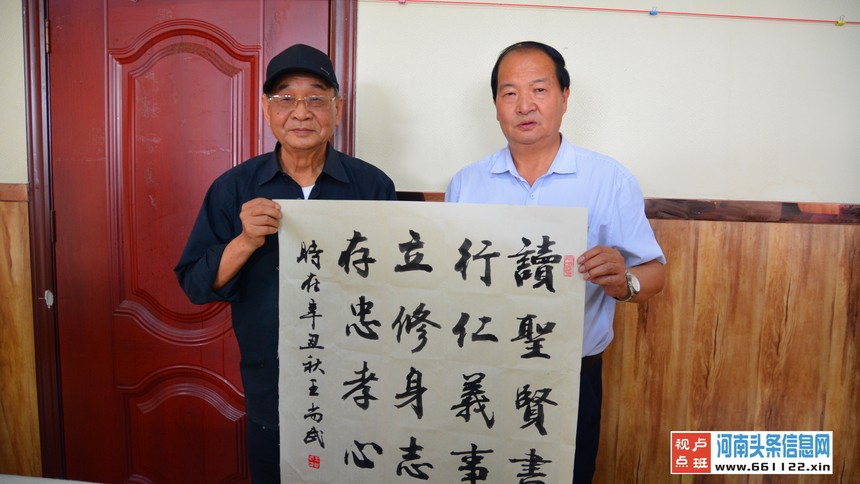 讀聖賢書
行仁義事
立修身志
存忠孝心
時在辛丑秋王尚武
视点
卢班
河南头条信息网
www.661122.xin